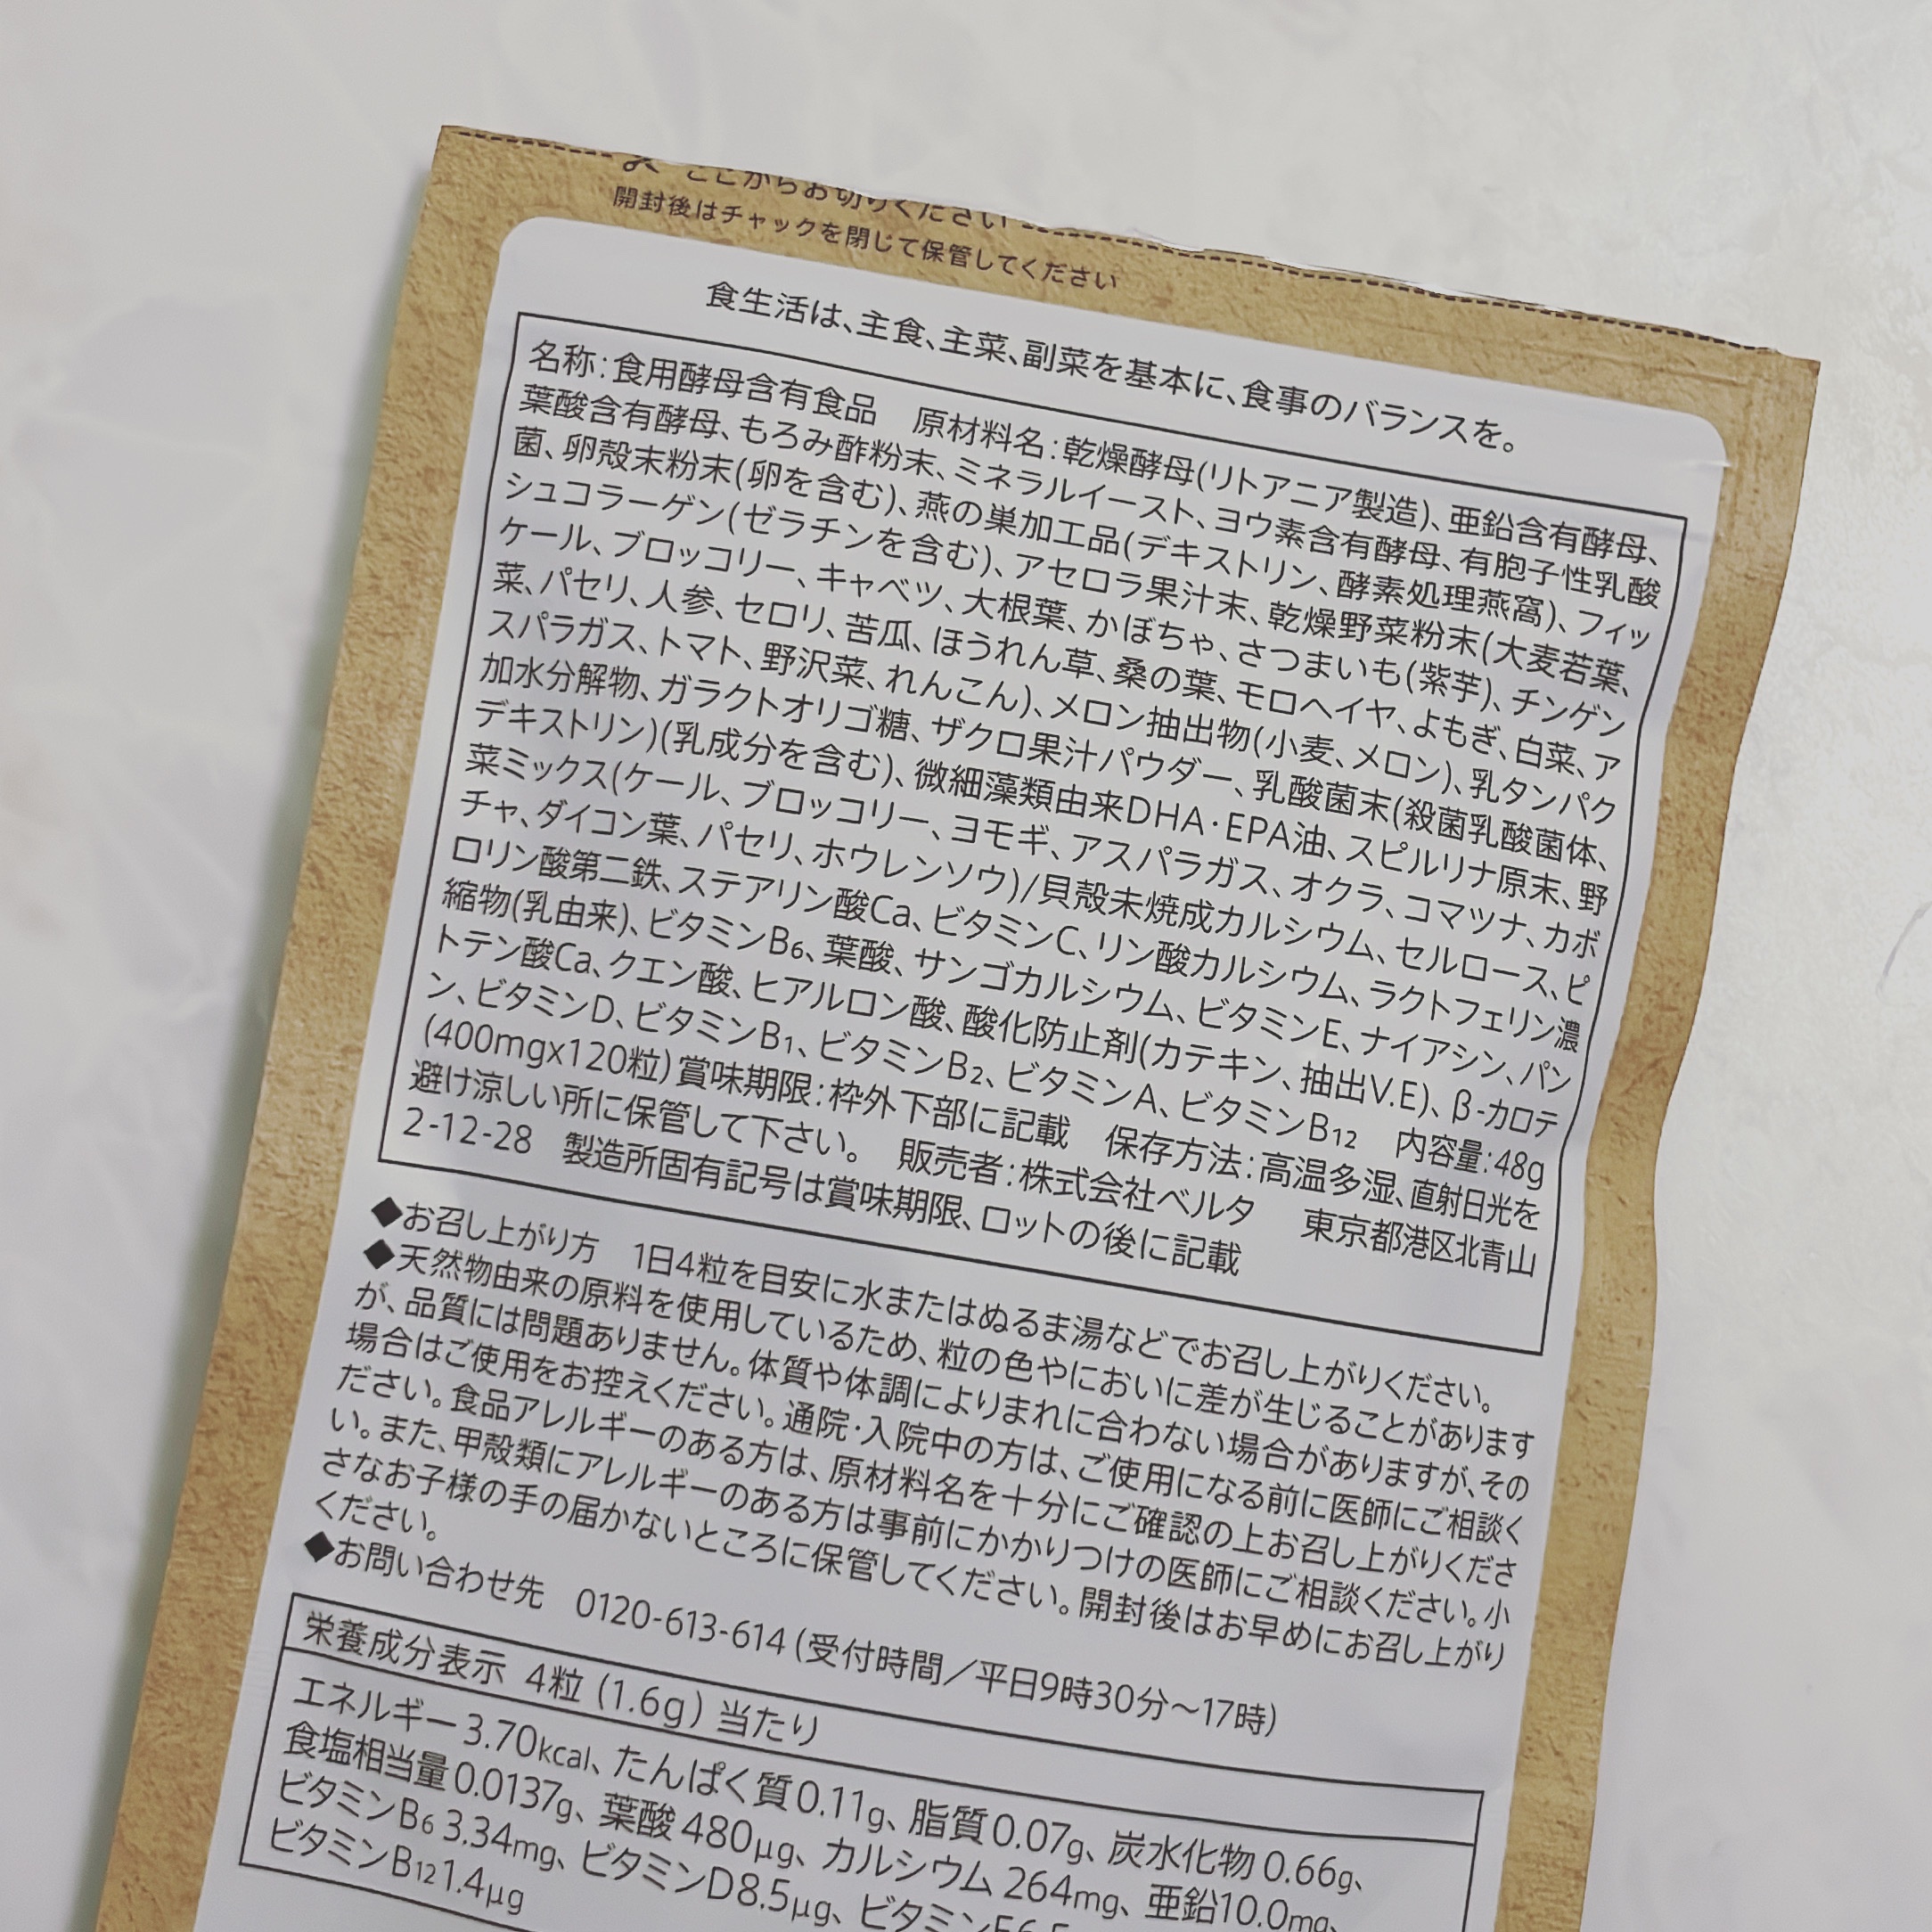 ここからお切りください
開封後はチャックを閉じて保管してください
食生活は、主食、主菜、副菜を基本に、食事のバランスを。
名称:食用酵母含有食品 原材料名:乾燥酵母(リトアニア製造)、亜鉛含有酵母、
葉酸含有酵母、もろみ酢粉末、ミネラルイースト、ヨウ素含有酵母、有胞子性乳酸
菌、卵殻末粉末(卵を含む)、燕の巣加工品(デキストリン、酵素処理燕窩)、フィッ
シュコラーゲン(ゼラチンを含む)、アセロラ果汁末、乾燥野菜粉末(大麦若葉、
ケール、ブロッコリー、キャベツ、大根葉、かぼちゃ、さつまいも(紫芋)、チンゲン
菜、パセリ、人参、セロリ、苦瓜、ほうれん草、桑の葉、モロヘイヤ、よもぎ、白菜、ア
スパラガス、トマト、野沢菜、れんこん)、メロン抽出物(小麦、メロン)、乳タンパク
加水分解物、ガラクトオリゴ糖、ザクロ果汁パウダー、乳酸菌末(殺菌乳酸菌体、
デキストリン)(乳成分を含む)、微細藻類由来DHA・EPA油、スピルリナ原末、野
菜ミックス(ケール、ブロッコリー、ヨモギ、アスパラガス、オクラ、コマツナ、カボ
チャ、ダイコン葉、パセリ、ホウレンソウ)/貝殻未焼成カルシウム、セルロース、ピ
ロリン酸第二鉄、ステアリン酸Ca、ビタミンC、リン酸カルシウム、ラクトフェリン濃
縮物(乳由来)、ビタミンB₆、葉酸、サンゴカルシウム、ビタミンE、ナイアシン、パン
トテン酸Ca、クエン酸、ヒアルロン酸、酸化防止剤(カテキン、抽出V.E)、β-カロテ
ン、ビタミンD、ビタミンB₁、ビタミンB₂、ビタミンA、ビタミンB₁₂ 内容量:48g
(400mgx120粒) 賞味期限:枠外下部に記載 保存方法:高温多湿、直射日光を
避け涼しい所に保管して下さい。 販売者:株式会社ベルタ 東京都港区北青山
2-12-28 製造所固有記号は賞味期限、ロットの後に記載
◆お召し上がり方 1日4粒を目安に水またはぬるま湯などでお召し上がりください。
◆天然物由来の原料を使用しているため、粒の色やにおいに差が生じることがあります
が、品質には問題ありません。体質や体調によりまれに合わない場合がありますが、その
場合はご使用をお控えください。通院・入院中の方は、ご使用になる前に医師にご相談く
ださい。食品アレルギーのある方は、原材料名を十分にご確認の上お召し上がりくださ
い。また、甲殻類にアレルギーのある方は事前にかかりつけの医師にご相談ください。小
さなお子様の手の届かないところに保管してください。開封後はお早めにお召し上がり
ください。
◆お問い合わせ先 0120-613-614(受付時間/平日9時30分~17時)
栄養成分表示 4粒 (1.6g) 当たり
エネルギー3.70kcal、たんぱく質0.11g、脂質0.07g、炭水化物0.66g、
食塩相当量0.0137g、葉酸480μg、カルシウム264mg、亜鉛10.0mg、
ビタミンB₆3.34mg、ビタミンD8.5μg、
ビタミンB₁₂1.4μg